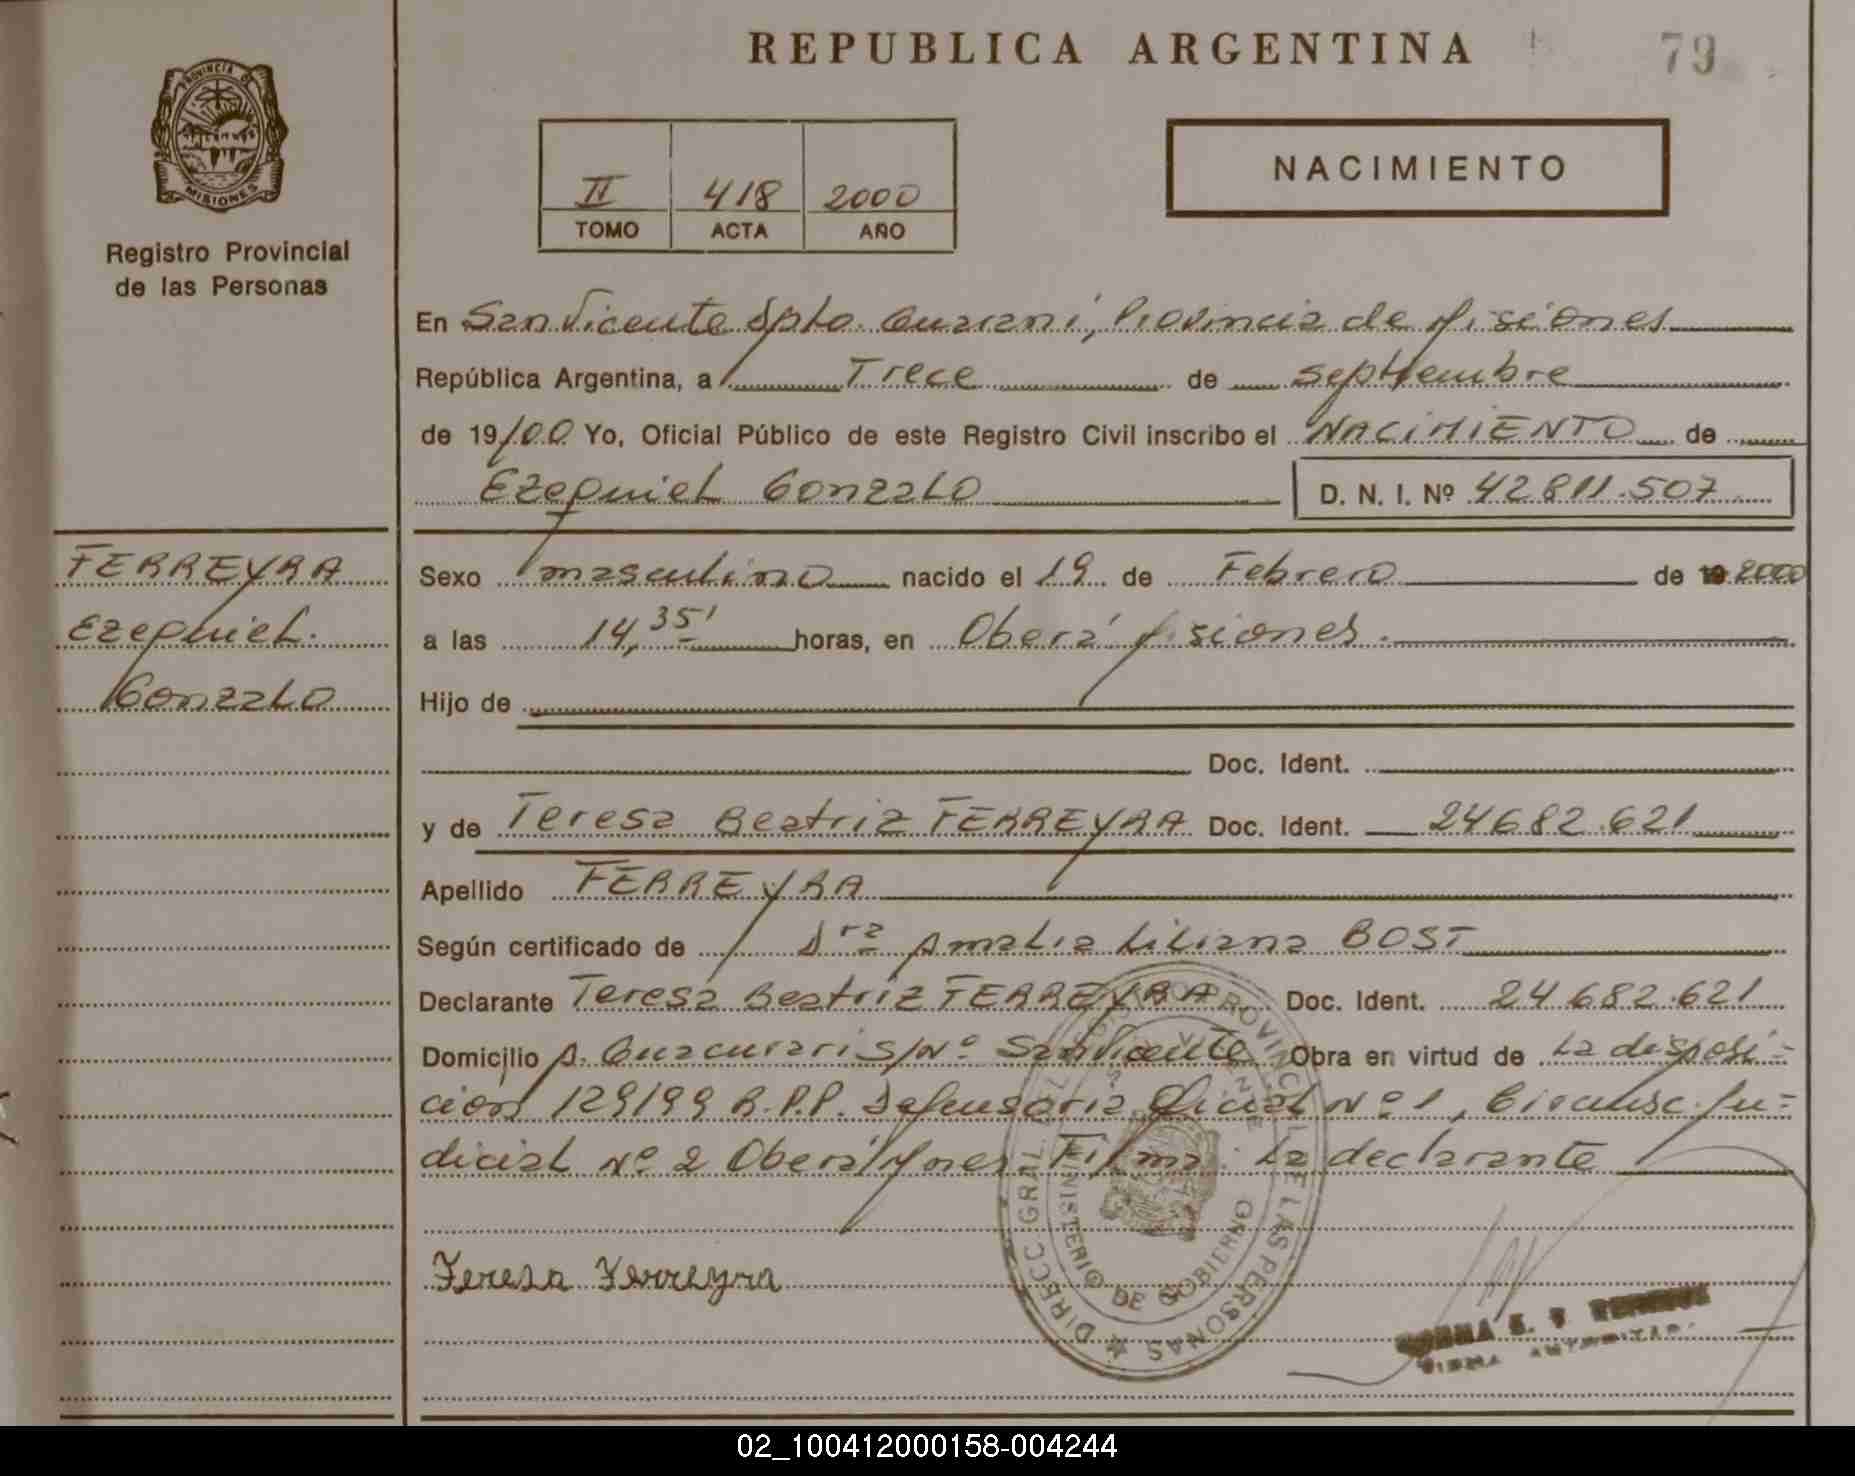 REPUBLICA ARGENTINA
79
PROVINCIA DE
MISIONES
Registro Provincial
de las Personas
II 418 2000
TOMO ACTA AÑO
NACIMIENTO
En San Vicente Dpto. Guarani, Provincia de Misiones
República Argentina, a Trece de septiembre
de 19/00 Yo, Oficial Público de este Registro Civil inscribo el NACIMIENTO de
Ezequiel Gonzalo D. N. I. Nº 42811.507
FERREYRA
Ezequiel.
Gonzalo
Sexo masculino nacido el 19 de Febrero de 2000
a las 14,35' horas, en Oberá Misiones.
Hijo de
Doc. Ident.
y de Teresa Beatriz FERREYRA Doc. Ident. 24682.621
Apellido FERREYRA
Según certificado de Dra Amalia Liliana BOST
Declarante Teresa Beatriz FERREYRA Doc. Ident. 24682.621
Domicilio A. Guacurari S/Nº San Vicente Obra en virtud de La disposi=
cion 129/99 R.P.P. Defensoria Oficial Nº 1, Circunsc. Ju=
dicial Nº 2 Oberá Mnes. Firma: La declarante
Teresa Ferreyra
DIRECC. GRAL. DEL REGISTRO PROVINCIAL DE LAS PERSONAS
MINISTERIO DE GOBIERNO
S. VICENTE
NORMA E. V.
FIRMA AUTORIZADA
02_100412000158-004244